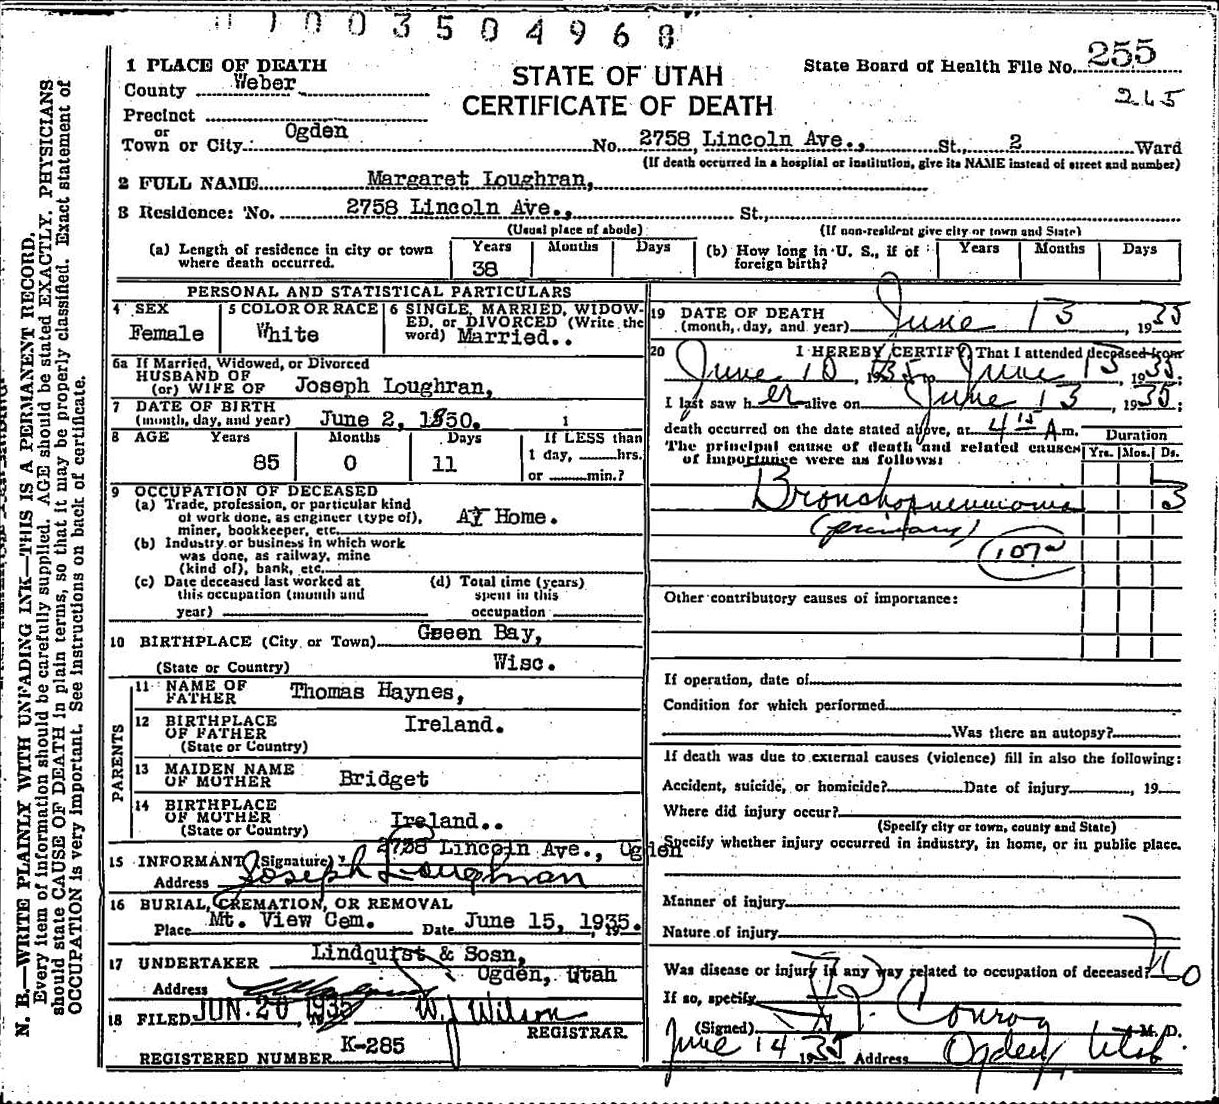 1003504968
255
State Board of Health File No.
265
STATE OF UTAH
CERTIFICATE OF DEATH
1 PLACE OF DEATH
County Weber
Precinct
or
Town or City Ogden No. 2758 Lincoln Ave., St., 2 Ward
(If death occurred in a hospital or institution, give its NAME instead of street and number)
2 FULL NAME Margaret Loughran,
3 Residence: No. 2758 Lincoln Ave., St.,
(Usual place of abode) (If non-resident give city or town and State)
(a) Length of residence in city or town where death occurred. Years 38 Months Days
(b) How long in U. S., if of foreign birth? Years Months Days
PERSONAL AND STATISTICAL PARTICULARS
4 SEX Female
5 COLOR OR RACE White
6 SINGLE, MARRIED, WIDOWED, or DIVORCED (Write the word) Married..
6a If Married, Widowed, or Divorced
HUSBAND OF
(or) WIFE OF Joseph Loughran,
7 DATE OF BIRTH
(month, day, and year) June 2, 1850. 1
8 AGE Years 85 Months 0 Days 11 If LESS than 1 day, hrs. or min.?
9 OCCUPATION OF DECEASED
(a) Trade, profession, or particular kind of work done, as engineer (type of), miner, bookkeeper, etc. At Home.
(b) Industry or business in which work was done, as railway, mine (kind of), bank, etc.
(c) Date deceased last worked at this occupation (month and year)
(d) Total time (years) spent in this occupation
10 BIRTHPLACE (City or Town) Green Bay,
(State or Country) Wisc.
PARENTS
11 NAME OF FATHER Thomas Haynes,
12 BIRTHPLACE OF FATHER (State or Country) Ireland.
13 MAIDEN NAME OF MOTHER Bridget
14 BIRTHPLACE OF MOTHER (State or Country) Ireland..
2758 Lincoln Ave., Ogden
15 INFORMANT (Signature)
Address Joseph Loughran
16 BURIAL, CREMATION, OR REMOVAL
Place Mt. View Cem. Date June 15, 1935. 19
17 UNDERTAKER Lindquist & Sosn,
Address Ogden, Utah
18 FILED JUN 20 1935, 19 W J Wilson
REGISTRAR
REGISTERED NUMBER K-285
19 DATE OF DEATH
(month, day, and year) June 13, 1935
20 I HEREBY CERTIFY, That I attended deceased from
June 10, 1935, to June 13, 1935;
I last saw her alive on June 13, 1935;
death occurred on the date stated above, at 4 15 A m.
The principal cause of death and related causes of importance were as follows:
Duration
Yrs. Mos. Ds.
Bronchopneumonia 3
(primary)
107a
Other contributory causes of importance:
If operation, date of
Condition for which performed
Was there an autopsy?
If death was due to external causes (violence) fill in also the following:
Accident, suicide, or homicide? Date of injury, 19
Where did injury occur?
(Specify city or town, county and State)
Specify whether injury occurred in industry, in home, or in public place.
Manner of injury
Nature of injury
Was disease or injury in any way related to occupation of deceased? No
If so, specify
(Signed) Conroy, M. D.
June 14 1935 Address Ogden, Utah
N. B.—WRITE PLAINLY WITH UNFADING INK—THIS IS A PERMANENT RECORD.
Every item of information should be carefully supplied. AGE should be stated EXACTLY. PHYSICIANS
should state CAUSE OF DEATH in plain terms, so that it may be properly classified. Exact statement of
OCCUPATION is very important. See instructions on back of certificate.